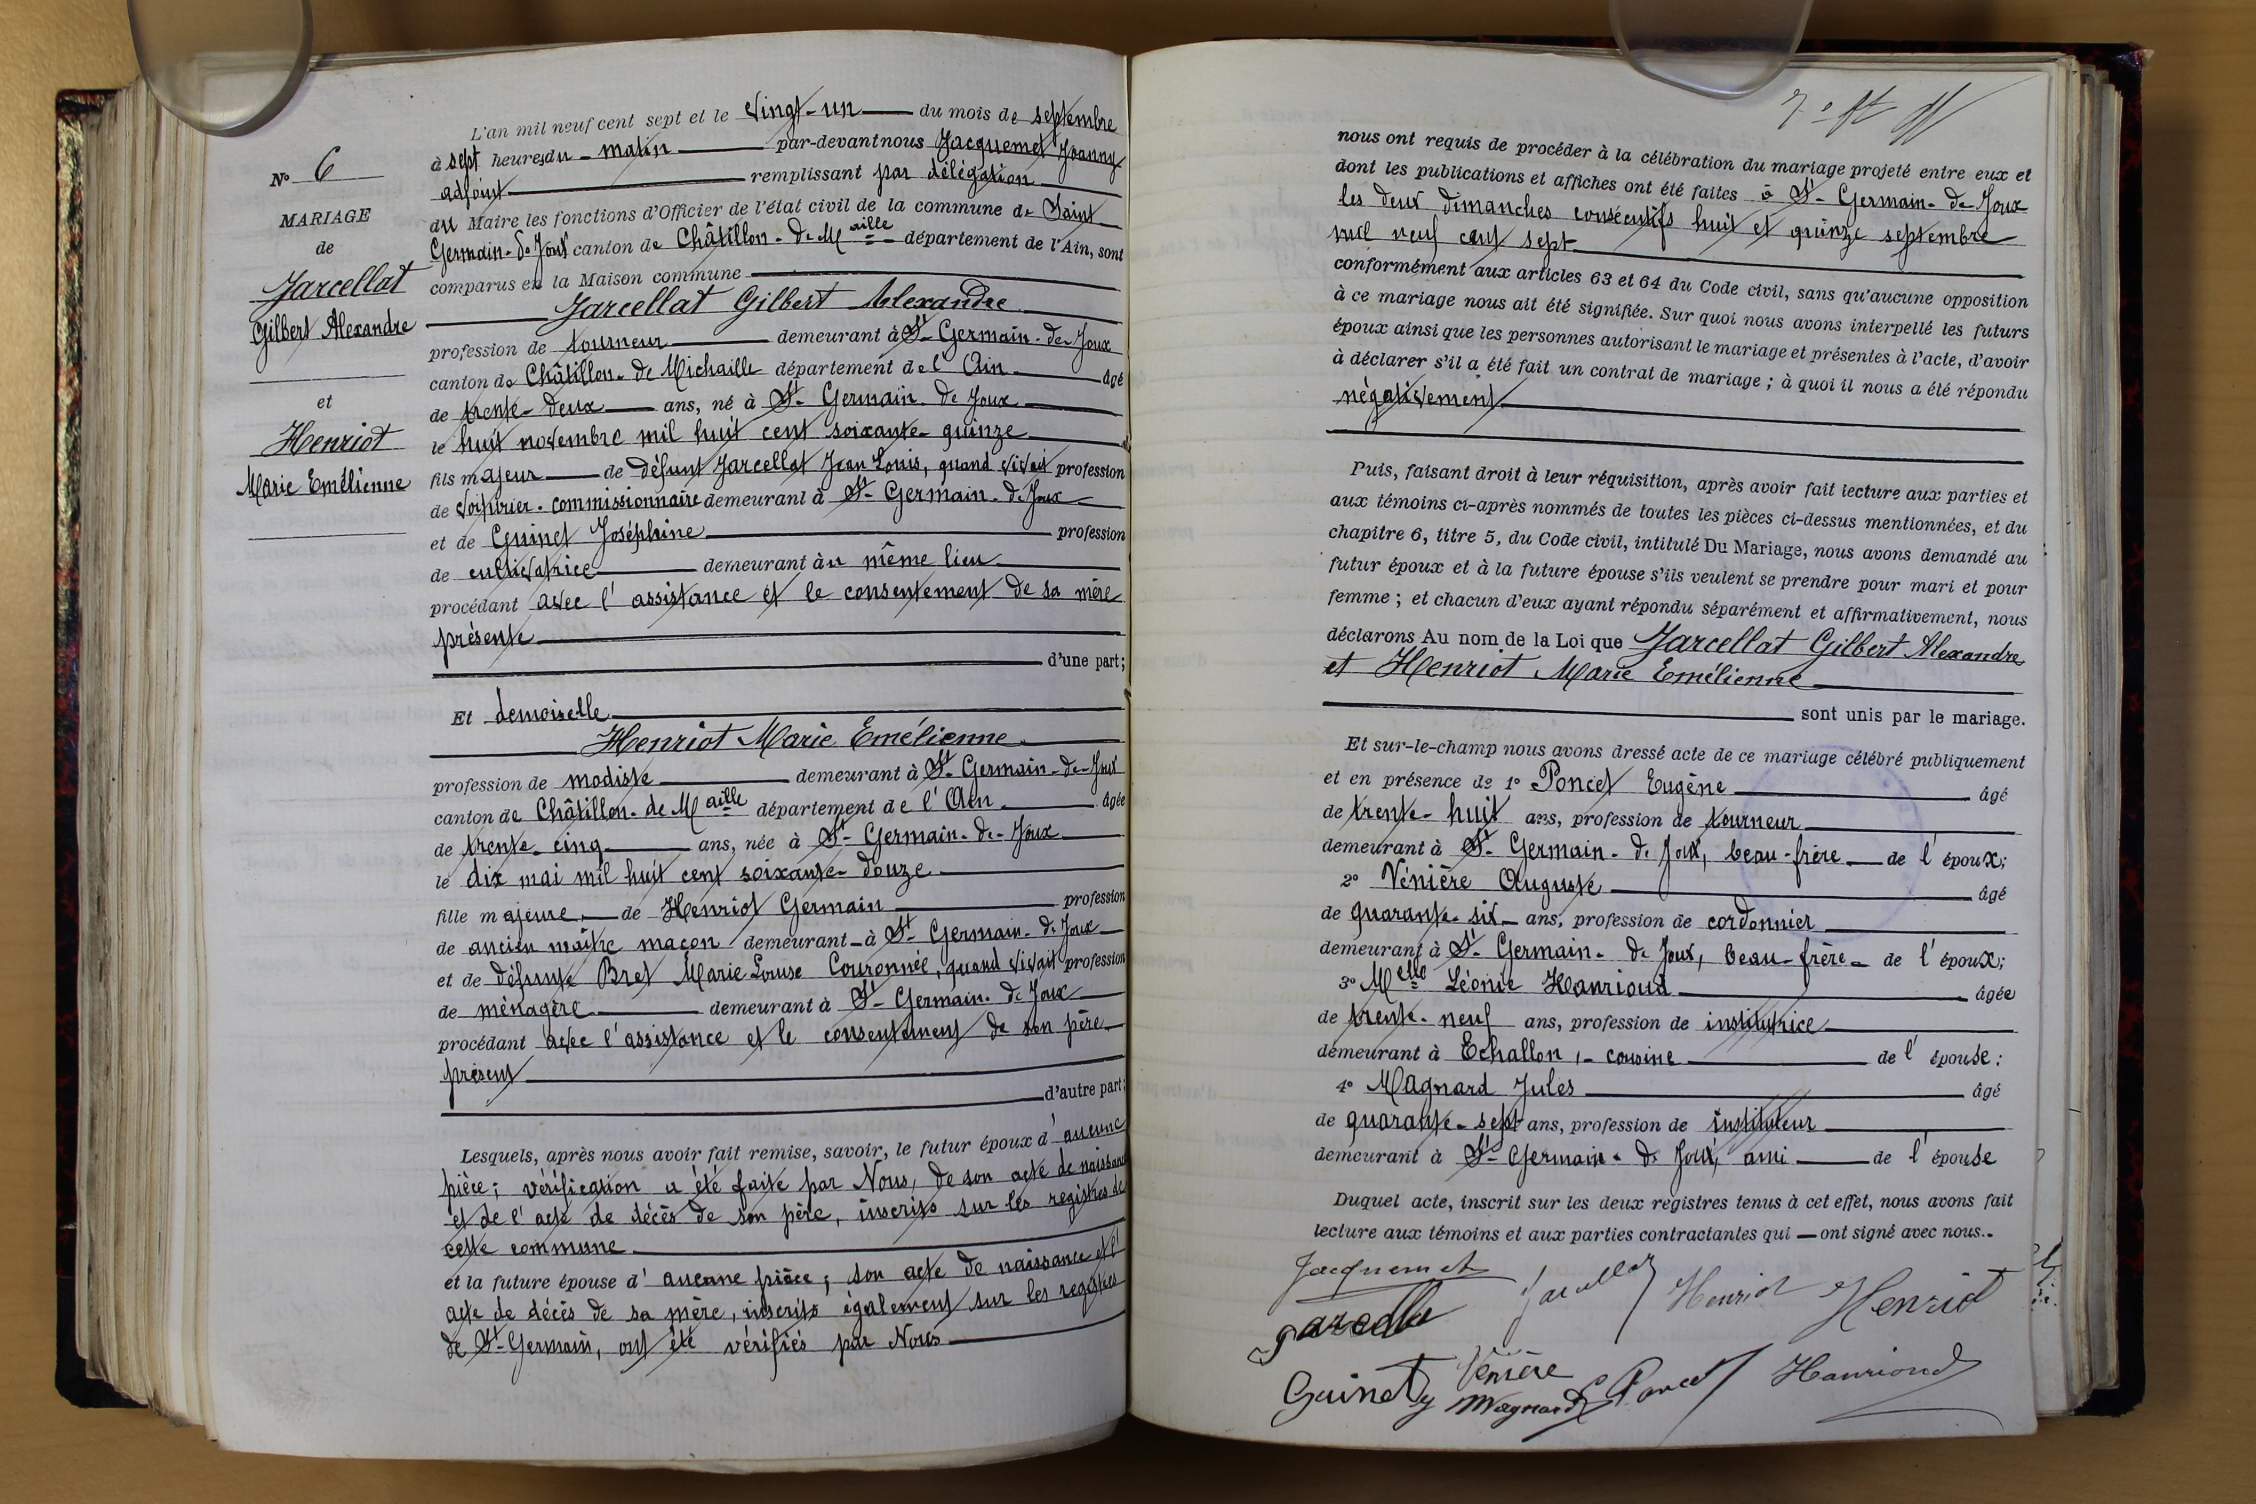 N° 6
MARIAGE
de
Jarcellat
Gilbert Alexandre
et
Henriot
Marie Emélienne
L'an mil neuf cent sept et le vingt-un du mois de septembre
à sept heures du matin par-devant nous Jacquemet Joanny
adjoint remplissant par délégation
du Maire les fonctions d'Officier de l'état civil de la commune de Saint
Germain-de-Joux canton de Châtillon-de-Maille département de l'Ain, sont
comparus en la Maison commune
Jarcellat Gilbert Alexandre
profession de tourneur demeurant à St-Germain-de-Joux
canton de Châtillon-de-Michaille département de l'Ain âgé
de trente-deux ans, né à St-Germain-de-Joux
le huit novembre mil huit cent soixante-quinze
fils majeur de défunt Jarcellat Jean Louis, quand vivait profession
de voiturier-commissionnaire demeurant à St-Germain-de-Joux
et de Guinet Joséphine profession
de cultivatrice demeurant au même lieu
procédant avec l'assistance et le consentement de sa mère
présente
d'une part;
Et demoiselle
Henriot Marie Emélienne
profession de modiste demeurant à St-Germain-de-Joux
canton de Châtillon-de-Maille département de l'Ain âgée
de trente-cinq ans, née à St-Germain-de-Joux
le dix mai mil huit cent soixante-douze
fille majeure, de Henriot Germain profession
de ancien maître maçon demeurant à St-Germain-de-Joux
et de défunte Bret Marie Louise Couronnée, quand vivait profession
de ménagère demeurant à St-Germain-de-Joux
procédant avec l'assistance et le consentement de son père
présent
d'autre part;
Lesquels, après nous avoir fait remise, savoir, le futur époux d'aucune
pièce; vérification a été faite par Nous, de son acte de naissance
et de l'acte de décès de son père, inscrits sur les registres de
cette commune
et la future épouse d'aucune pièce; son acte de naissance et l'
acte de décès de sa mère, inscrits également sur les registres
de St-Germain, ont été vérifiés par Nous
nous ont requis de procéder à la célébration du mariage projeté entre eux et
dont les publications et affiches ont été faites à St-Germain-de-Joux
les deux dimanches consécutifs huit et quinze septembre
mil neuf cent sept
conformément aux articles 63 et 64 du Code civil, sans qu'aucune opposition
à ce mariage nous ait été signifiée. Sur quoi nous avons interpellé les futurs
époux ainsi que les personnes autorisant le mariage et présentes à l'acte, d'avoir
à déclarer s'il a été fait un contrat de mariage; à quoi il nous a été répondu
négativement
Puis, faisant droit à leur réquisition, après avoir fait lecture aux parties et
aux témoins ci-après nommés de toutes les pièces ci-dessus mentionnées, et du
chapitre 6, titre 5, du Code civil, intitulé Du Mariage, nous avons demandé au
futur époux et à la future épouse s'ils veulent se prendre pour mari et pour
femme; et chacun d'eux ayant répondu séparément et affirmativement, nous
déclarons Au nom de la Loi que Jarcellat Gilbert Alexandre
et Henriot Marie Emélienne
sont unis par le mariage.
Et sur-le-champ nous avons dressé acte de ce mariage célébré publiquement
et en présence de 1° Poncet Eugène âgé
de trente-huit ans, profession de tourneur
demeurant à St-Germain-de-Joux, beau-frère de l'époux;
2° Vénière Auguste âgé
de quarante-six ans, profession de cordonnier
demeurant à St-Germain-de-Joux, beau-frère de l'époux;
3° Melle Léonie Hanrioud âgée
de trente-neuf ans, profession de institutrice
demeurant à Echallon, cousine de l'épouse:
4° Magnard Jules âgé
de quarante-sept ans, profession de instituteur
demeurant à St-Germain-de-Joux, ami de l'épouse
Duquel acte, inscrit sur les deux registres tenus à cet effet, nous avons fait
lecture aux témoins et aux parties contractantes qui ont signé avec nous.
Jacquemet Jarcellat Henriot Henriot
Vénière
Guinet Magnard Poncet Hanrioud